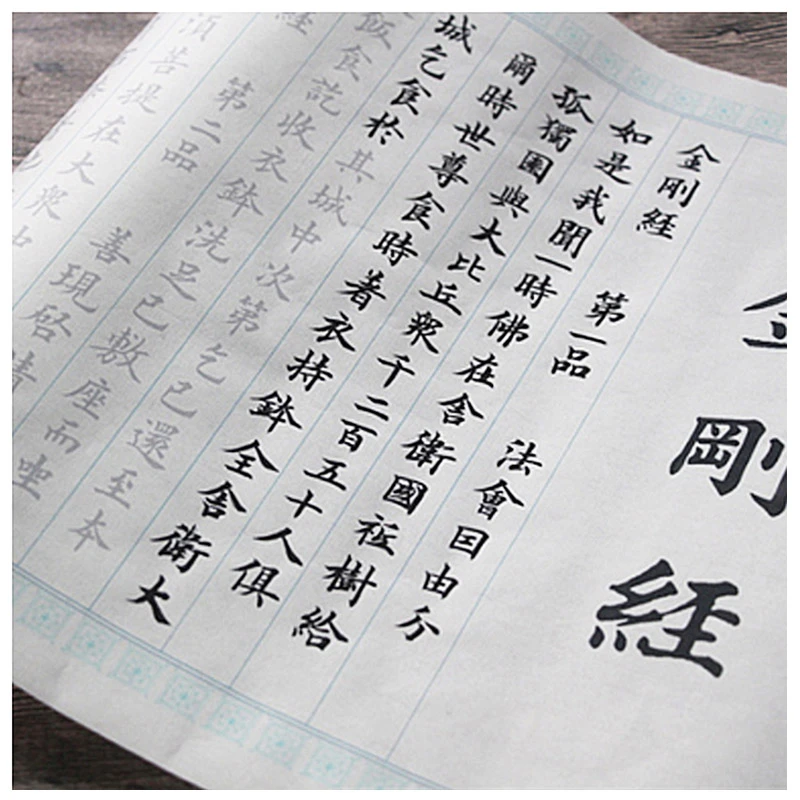 金剛經
金剛經 第一品 法會因由分
如是我聞一時佛在舍衛國祇樹給
孤獨園與大比丘眾千二百五十人俱
爾時世尊食時著衣持鉢全舍衛大
城乞食於其城中次第乞已還至本
飯食訖收衣鉢洗足已敷座而坐
經 第二品 善現啓請
須菩提在大眾中